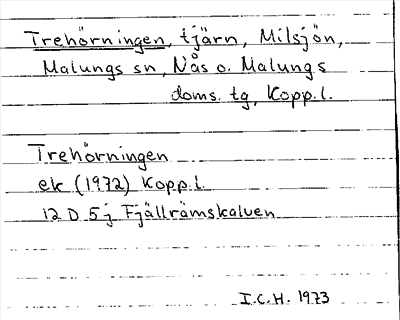 Trehörningen, tjärn, Milsjön,
Malungs sn, Nås o. Malungs
doms. tg, Kopp.l.
Trehörningen
ek (1972) Kopp.l.
12 D 5j Fjällrämskalven
I.C.H. 1973